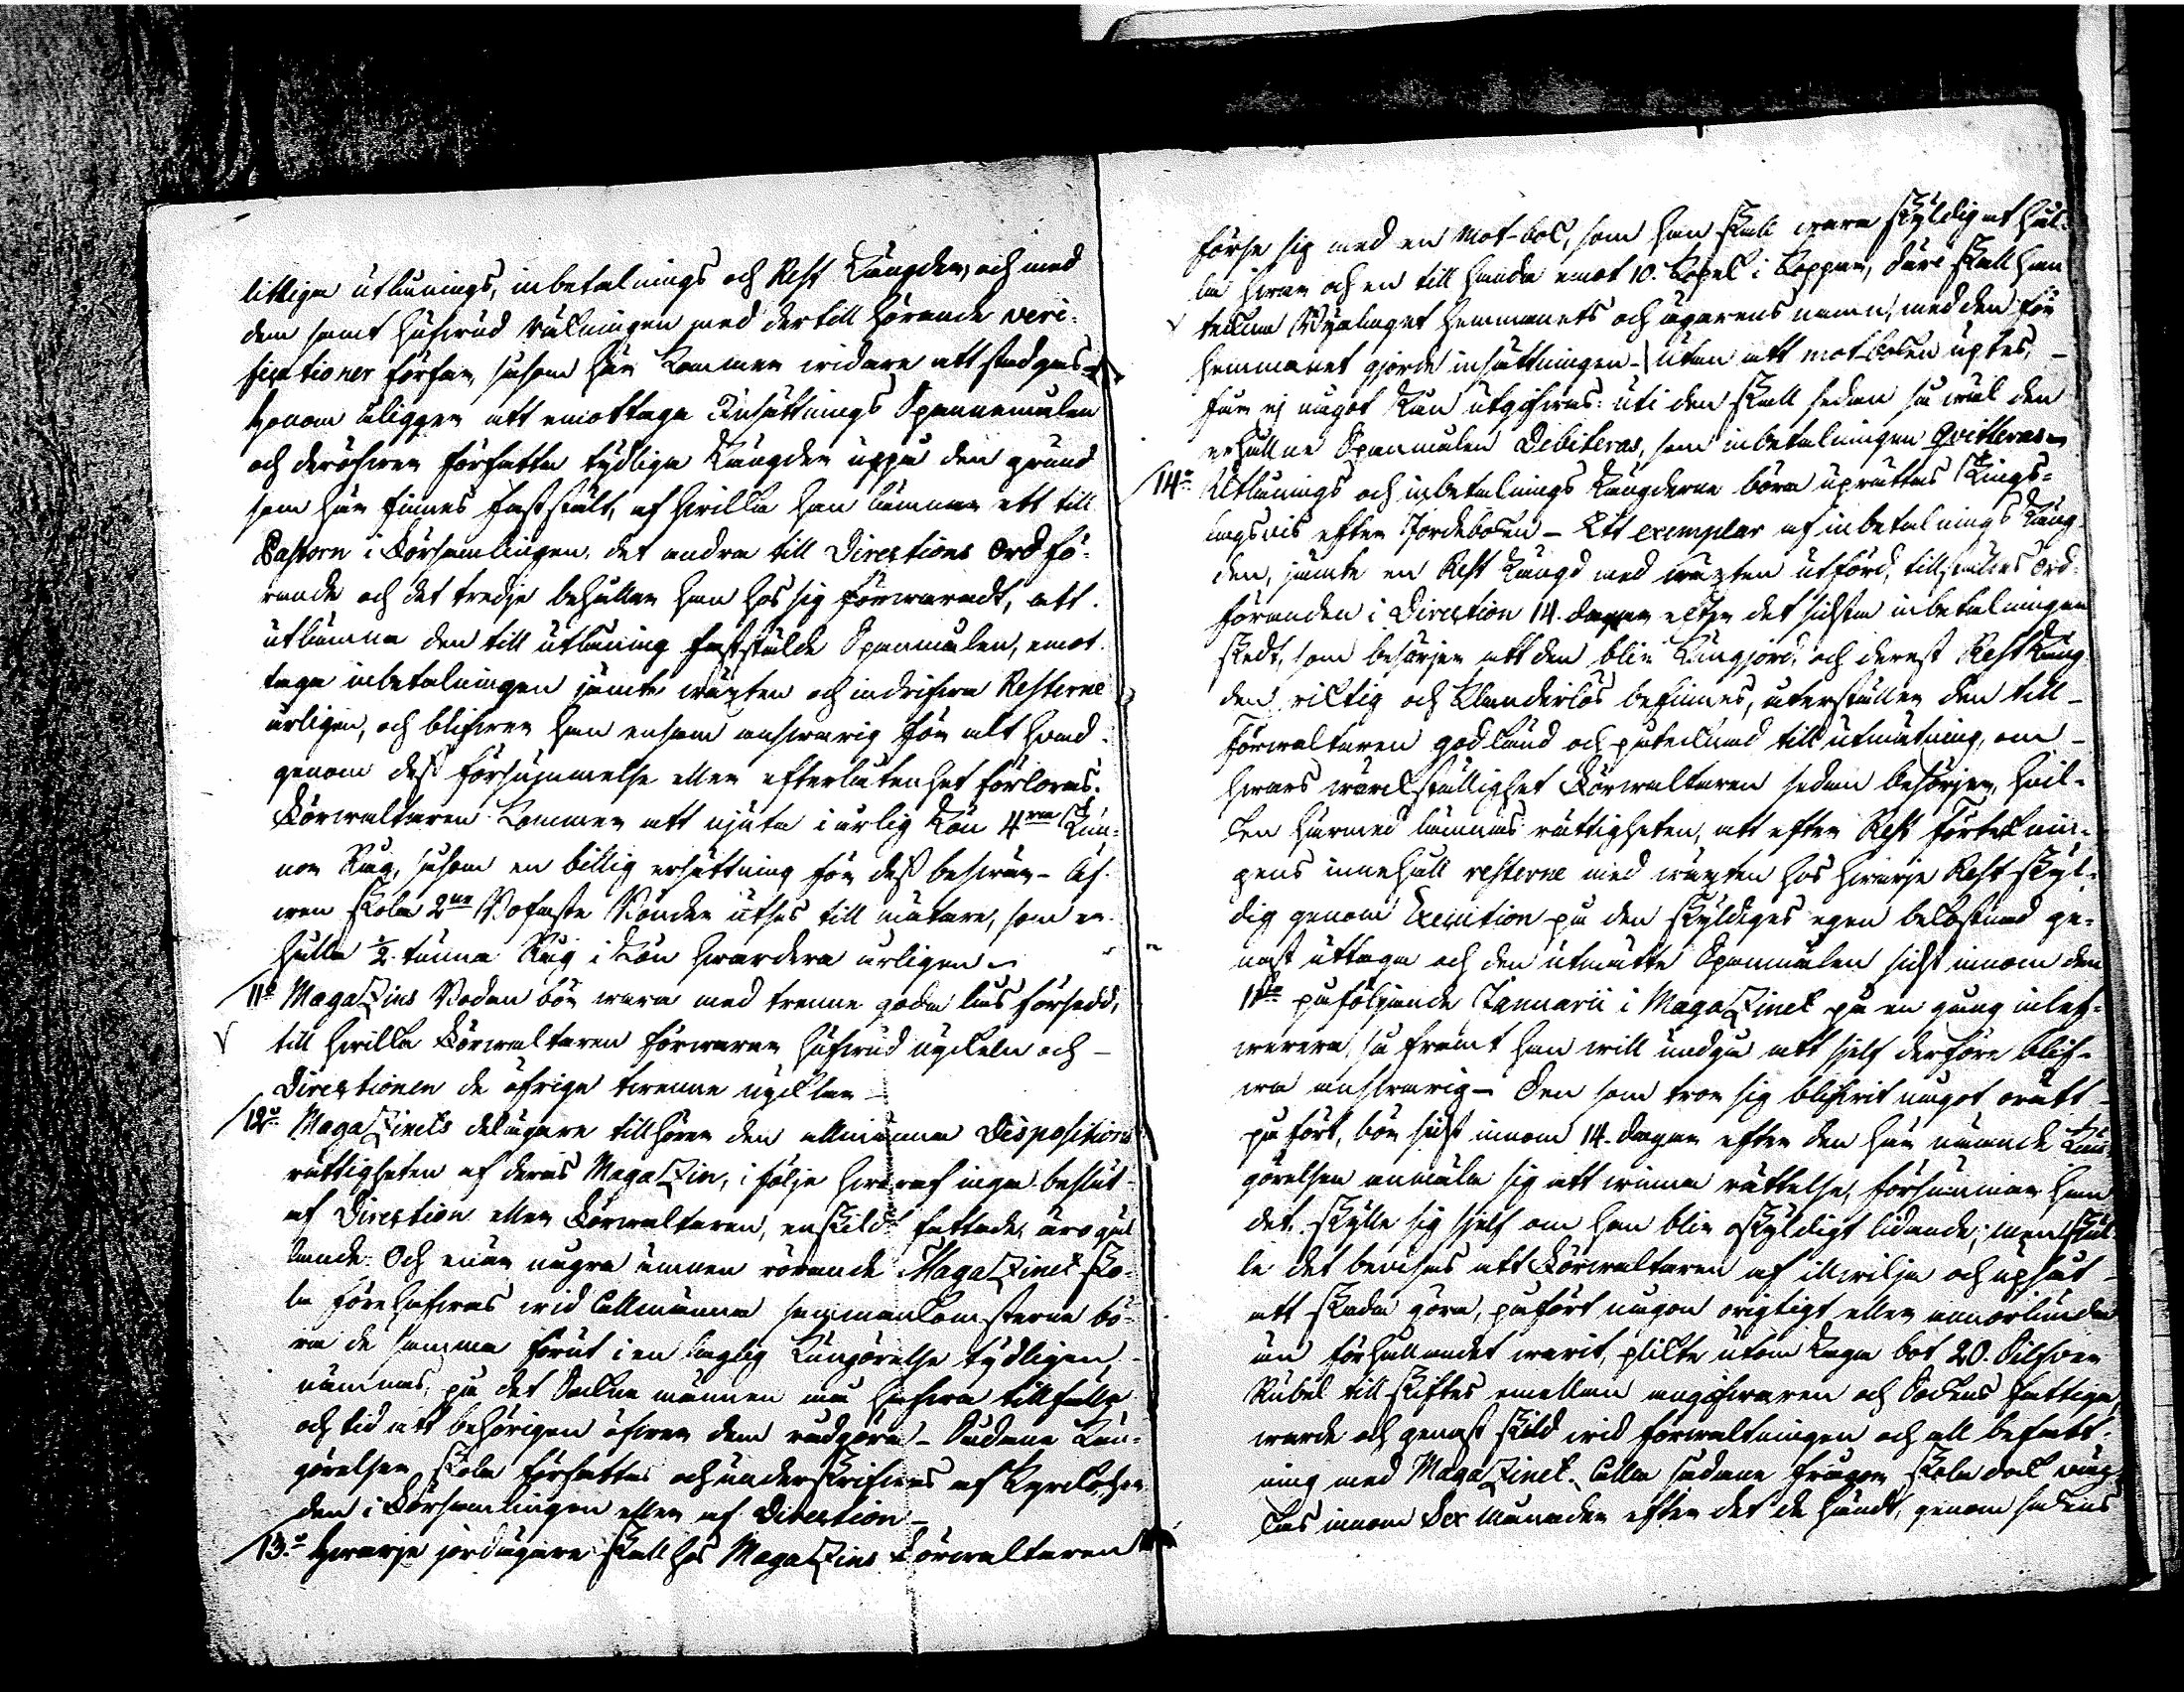 litliga utlånings, inbetalnings och Rest Längder, och med
dem samt hufwud räkningen med dertill hörande veri-
fictioner förfar, såsom här kommer widare att stadgas
honom åligger att emottaga Insättnings Spannemålen
och deröfwer författa tydliga Längder uppå den grund
som här finnes fastställt, af hwilka han lämnar ett till
Pastorn i Församlingen, det andra till Directions Ordfö-
rande och det tredje behåller han hos sig förwaradt, att
utlämna den till utlåning fastställde Spanmålen, emot
taga inbetalningen jämte wäxten och indrifwa Resterne
årligen, och blifwer han ensam answarig för alt hwad
genom dess försummelse eller efterlåtenhet förloras.
Förwaltaren kommer att njuta i årlig Lön 4ra Tun-
nor Råg, såsom en billig ersättning för dess beswär – Äf-
wen skola 2ne Bofaste Bönder utses till mätare, som er-
hålla ½ tunna Råg i Lön hwardera årligen
11o Magazins Boden bör wara med trenne goda lås försedd,
till hwilka Förwaltaren förwarar hufwud nyckeln och –
Directionen de öfrige twenne nycklar –
12o Magazinets delägare tillhörer den allmänna Dispositions
rättigheten af deras Magazin, i följe hwaraf inga beslut
af Direction eller Förwaltaren, enskildt fattade, äro gäl
lande. Och enär några ämnen rörande Magazinet sko-
la förehafwas wid Allmänna sammankomsterna bö-
ra de samma förut i en laglig Kungörelse tydligen
nämnas, på det Sockne männen må hafwa tillfälle
och tid att behörigen öfwer dem rådgöra – Sådane Kun-
görelser skola författas och underskrifwas af Kyrckoher
den i Församlingen eller af Direction –
13o Hwarje jordägare skall hos Magazins Förwaltaren
förse sig med en mot-bok, som han skall wara skyldig at hål-
la hwar och en till handa emot 10. Kopek i Koppar, däri skall han
teckna Byalaget hemmanets och ägarens namn, med den för
hemmanet gjorde insättningen – utan att mot-boken uptes, –
får ej något Lån utgifwas: uti den skall sedan så wäl den
erhållne Spanmålen Debiteras, som inbetalningen Qvitteras
14o Utlånings och inbetalnings Längderne böra uprättas
efter Jordeboken – Ett exemplar af inbetalnings Läng
den, jämte en Rest Längd med wäxten utförd, tillställes Ord-
föranden i Direction 14. dagar efter det sidsta inbetalningen
skedt, som besörjer att den blir Kungjord, och derest Rest Läng
den riktig och klanderlös befinnes, återställer den till –
Förwaltaren godkänd och påtecknad till utmätning, om –
hwars wärckställighet Förwaltaren sedan besörjer, hwil-
ken härmed lämnas rättigheten, att efter Rest Förteknin-
gens innehåll resterne med wäxten hos hwarje Rest-skyl-
dig genom Execution på den skyldiges egen bekostnad ge-
nast uttaga och den utmätte Spanmålen sidst innom den
påföljande Januarii i Magazinet på en gång inlef-
werera, så framt han will undgå att sjelf derföre blif-
wa answarig – Den som tror sig blifwit något orätt –
på fört, bör sidst innom 14. dagar efter den här nämnde Kun
görelsen anmäla sig att winna rättelse, försummar han
det. skylle sig sjelf om han blir oskyldigt lidande; men skul
le det bewisas att Förwaltaren af illwilja och upsåt –
att skada göra, påfört någon origtigt eller annorlunda
än förhållandet warit, plikte utom Laga bot 20. Silfwer
Rubel till skiftes emellan angifwaren och Sockens fattiga,
warde och genast skild wid förwaltningen och all befatt-
ning med Magazinet. Alla sådane frågor skola dock wäc-
kas innom Sex månader efter det de händt, genom sockens